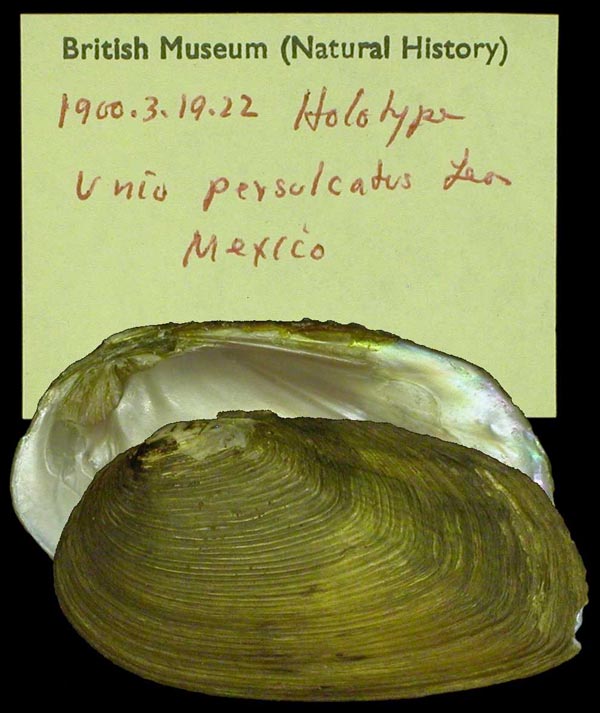 British Museum (Natural History)
1900.3.19.22 Holotype
Unio persulcatus Lea
Mexico